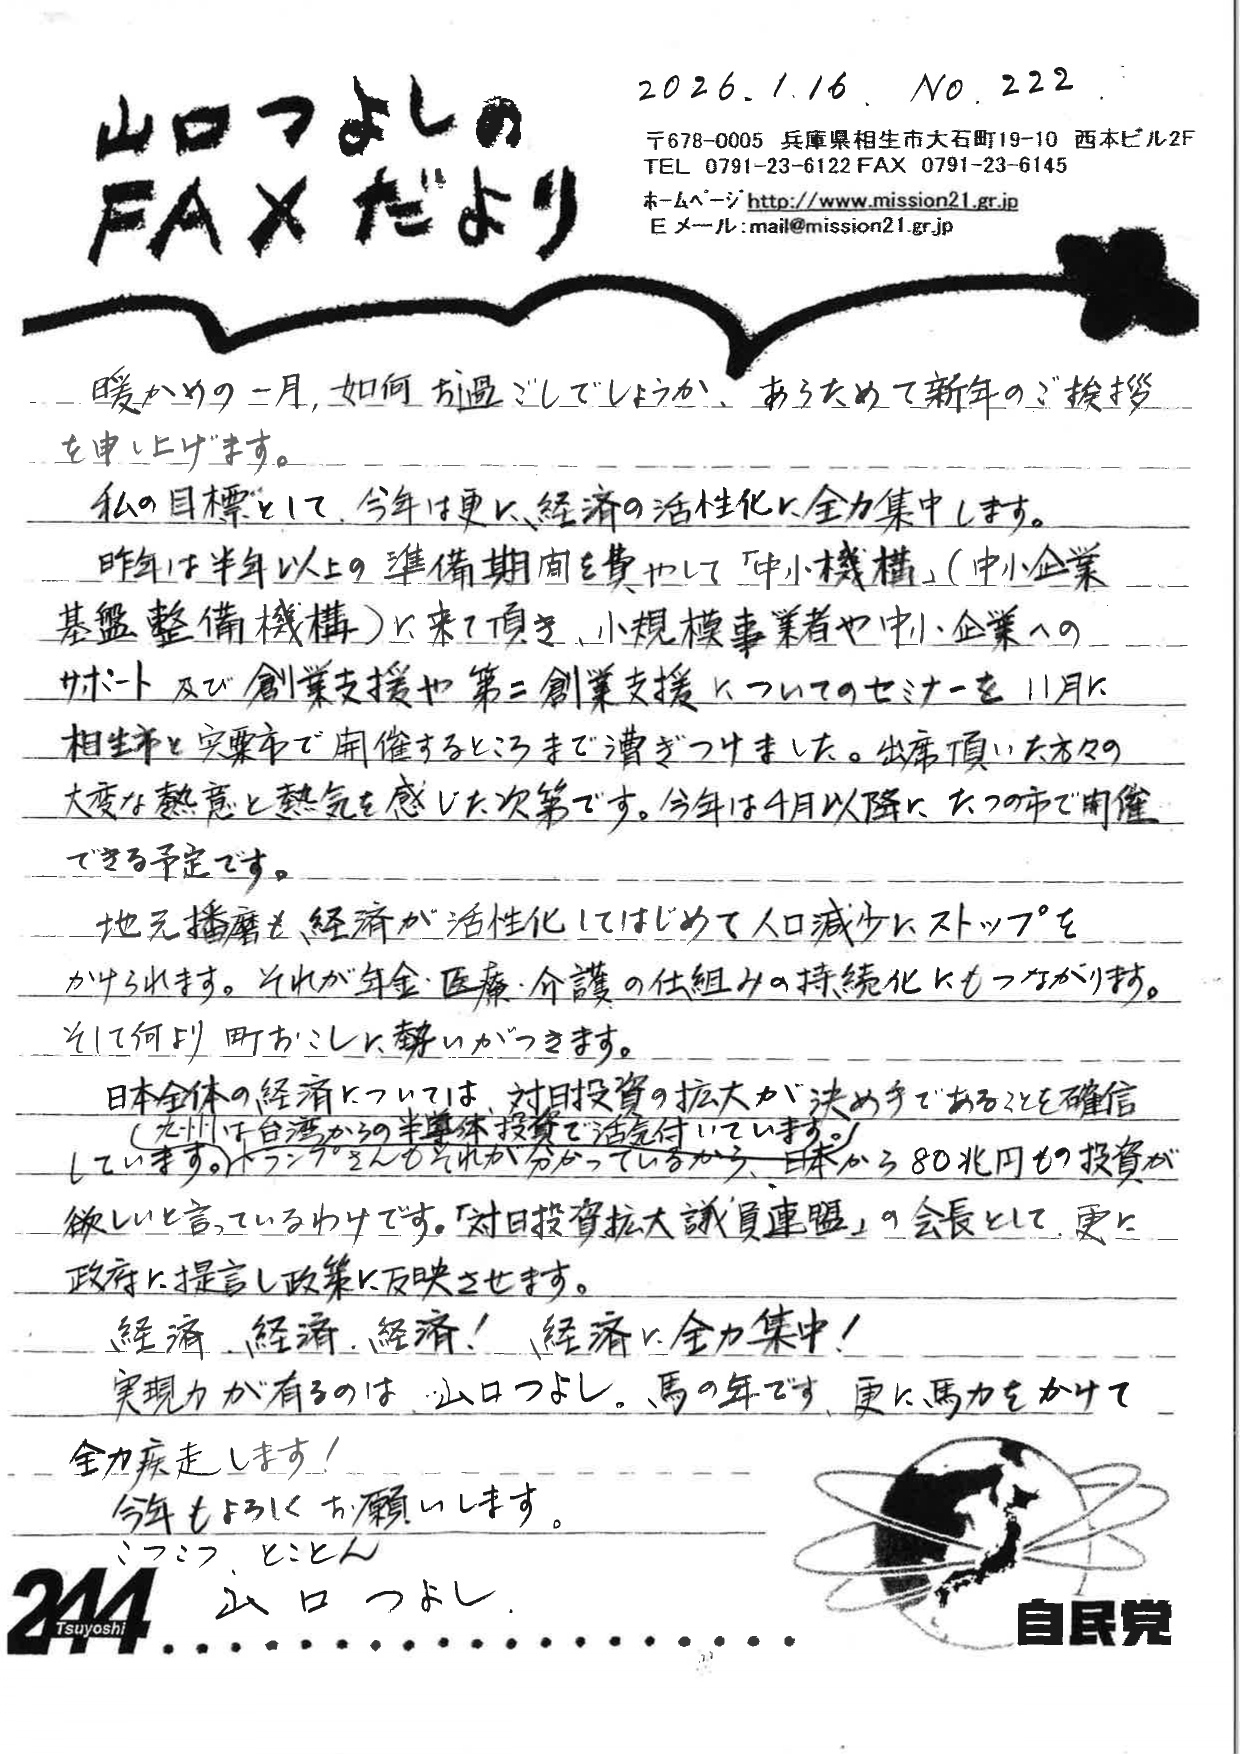 山口つよしの
FAXだより
2026.1.16. No.222.
〒678-0005 兵庫県相生市大石町19-10 西本ビル2F
TEL 0791-23-6122 FAX 0791-23-6145
ホームページ http://www.mission21.gr.jp
Eメール:mail@mission21.gr.jp
暖かめの一月,如何お過ごしでしょうか、あらためて新年のご挨拶
を申し上げます。
私の目標として、今年は更に、経済の活性化に全力集中します。
昨年は半年以上の準備期間を費やして「中小機構」(中小企業
基盤整備機構)に来て頂き、小規模事業者や中小企業への
サポート及び創業支援や第二創業支援についてのセミナーを11月に
相生市と宍粟市で開催するところまで漕ぎつけました。出席頂いた方々の
大変な熱意と熱気を感じた次第です。今年は4月以降に、たつの市で開催
できる予定です。
地元播磨も、経済が活性化してはじめて人口減少にストップを
かけられます。それが年金・医療・介護の仕組みの持続化にもつながります。
そして何より町おこしに勢いがつきます。
日本全体の経済については、対日投資の拡大が決め手であることを確信
(九州は台湾からの半導体投資で活気付いています。)
しています。トランプさんもそれが分かっているから、日本から80兆円もの投資が
欲しいと言っているわけです。「対日投資拡大議員連盟」の会長として、更に
政府に提言し政策に反映させます。
経済、経済、経済! 経済に全力集中!
実現力が有るのは、山口つよし。馬の年です、更に馬力をかけて
全力疾走します!
今年もよろしくお願いします。
こつこつ、とことん
山口つよし.
244
Tsuyoshi
自民党